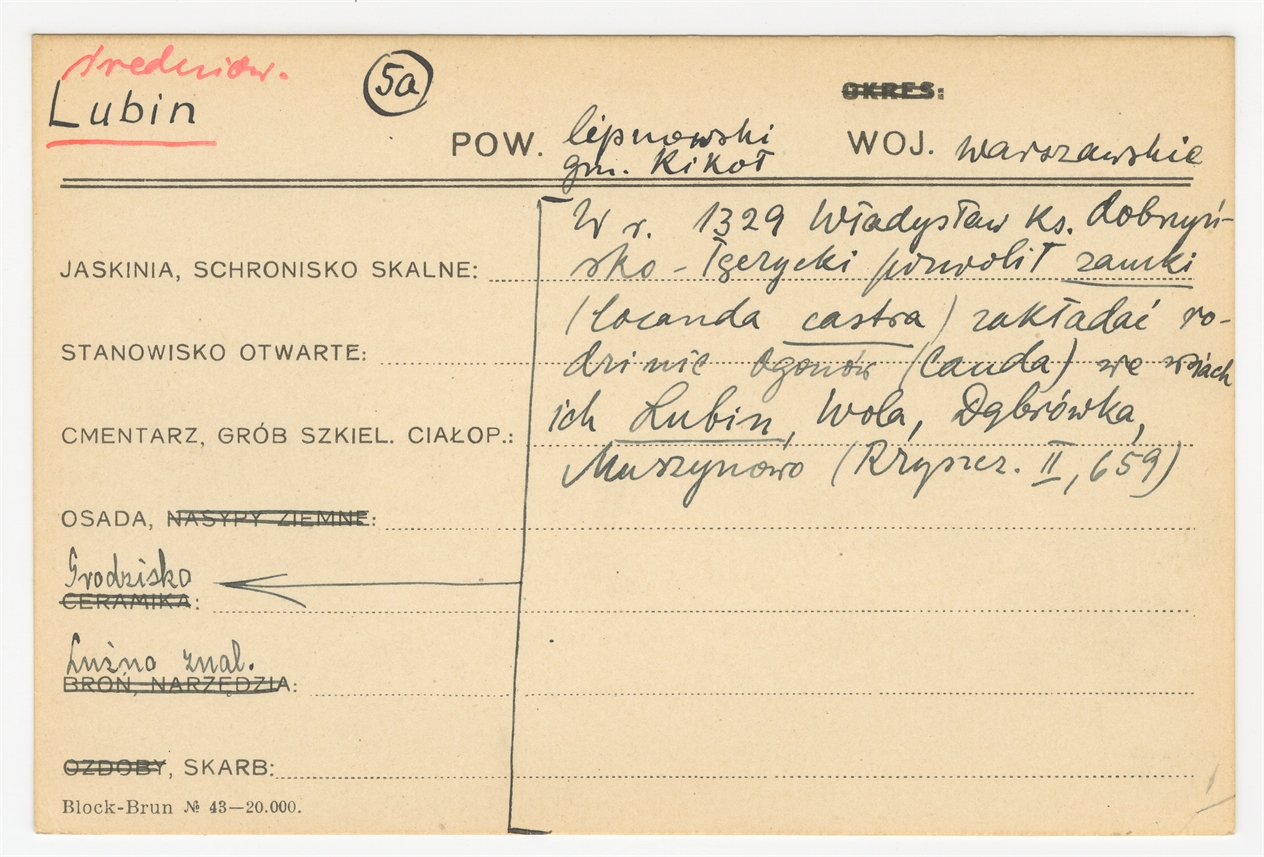 średniow.
Lubin
5a
OKRES:
POW. lipnowski
gm. Kikoł
WOJ. warszawskie
W r. 1329 Władysław ks. dobrzyń-
JASKINIA, SCHRONISKO SKALNE: sko-łęczycki pozwolił zamki
(locanda castra) zakładać ro-
STANOWISKO OTWARTE: dzinie Ogonów (Cauda) we wsiach
CMENTARZ, GRÓB SZKIEL. CIAŁOP.: ich Lubin, Wola, Dąbrówka,
Muszynowo (Rzyszcz. II, 659)
OSADA, NASYPY ZIEMNE:
Grodzisko
CERAMIKA:
Luźno znal.
BROŃ, NARZĘDZIA:
OZDOBY, SKARB:
Block-Brun № 43—20.000.